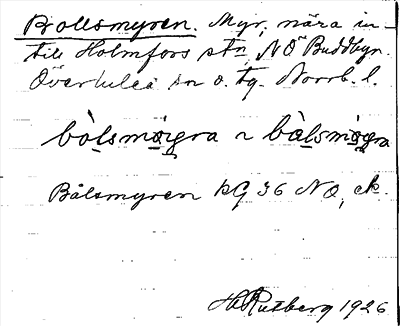 Bollsmyren. Myr, nära in-
till Holmfors stn, NÖ Buddbyn.
Överluleå sn o. tg. Norrb. l.
bòlsmỳra ~ bàlsmỳra
Bålsmyren kG 36 NO, ek.
H. Rutberg 1926